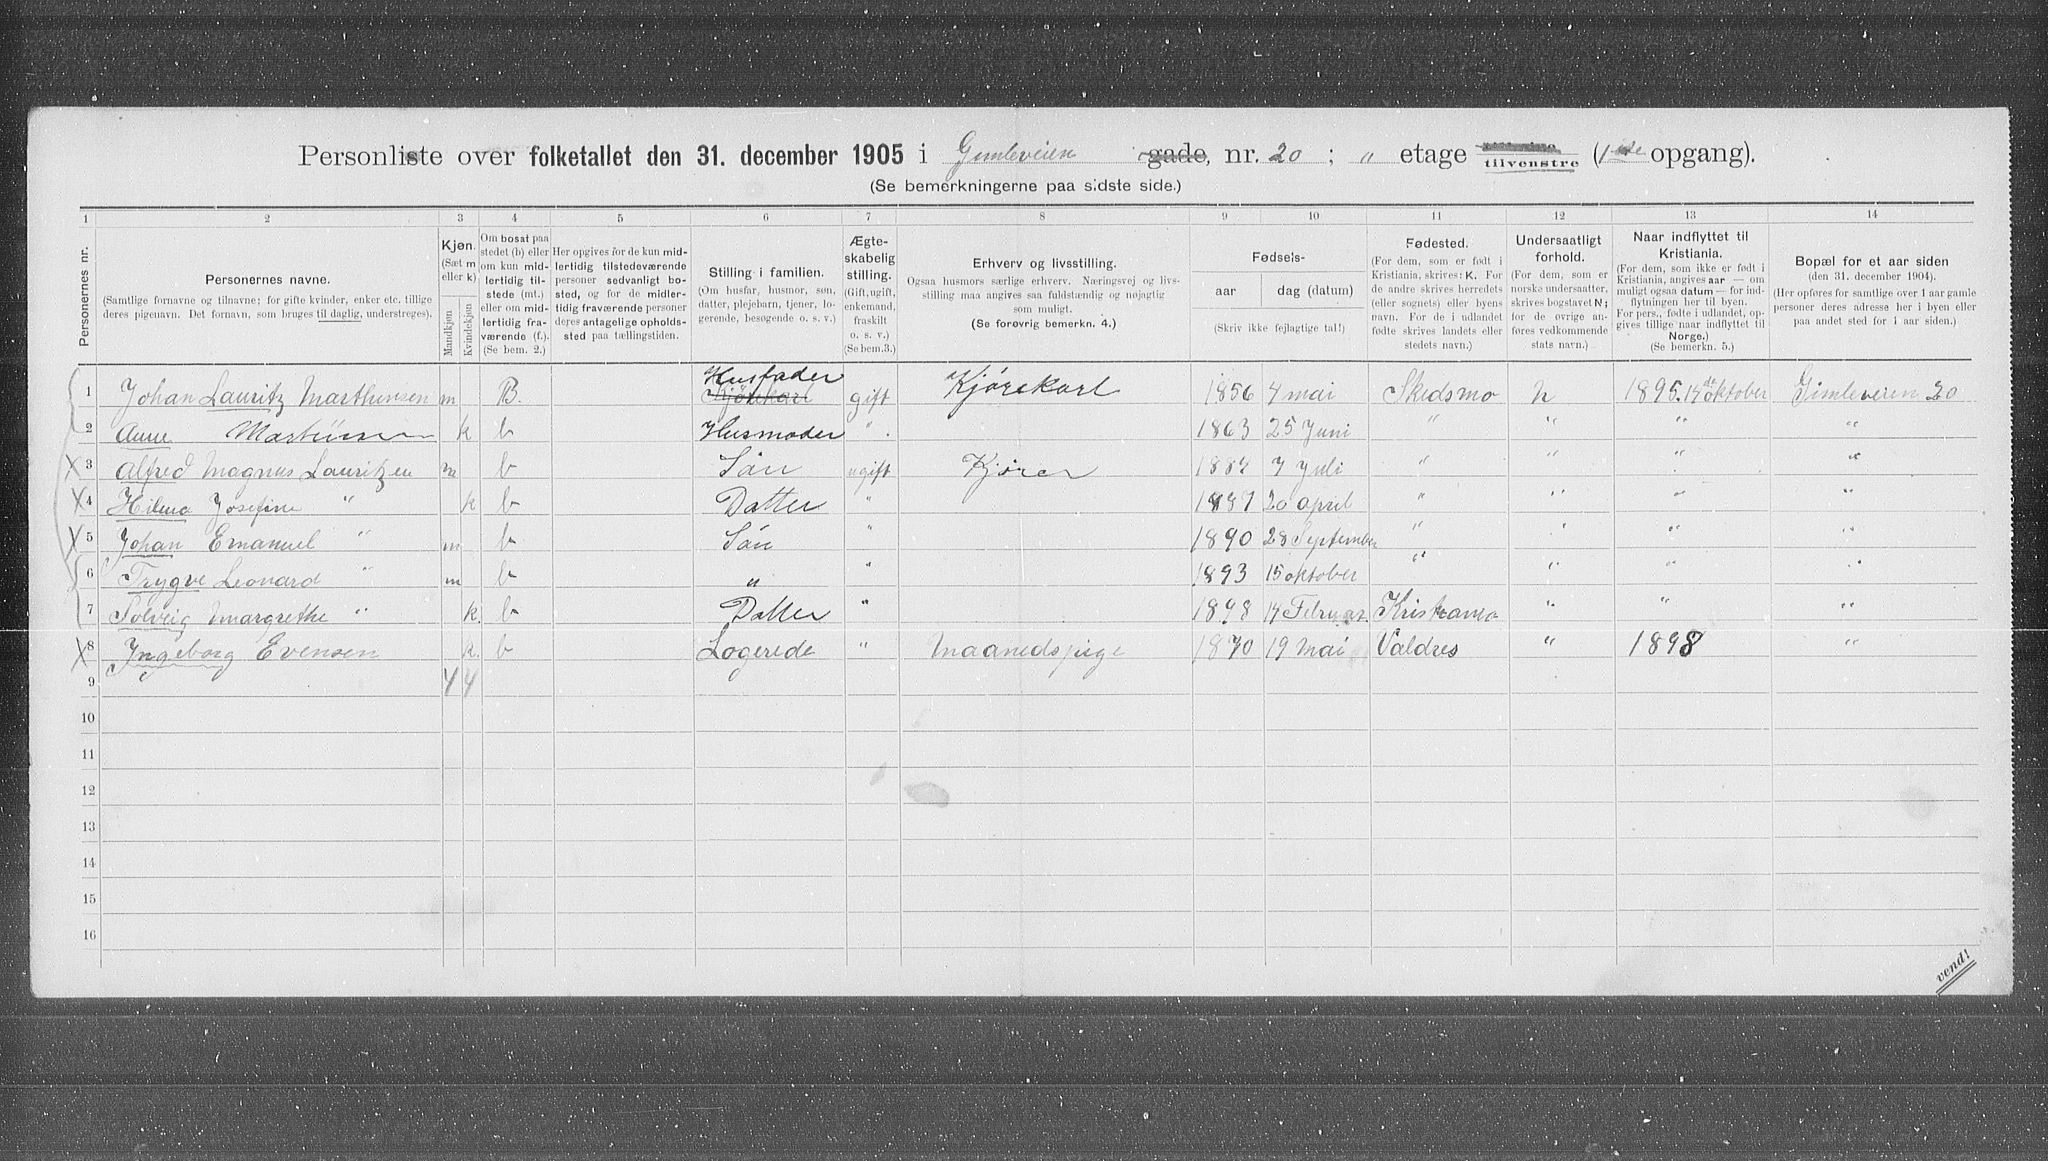 Personliste over folketallet den 31. december 1905 i Gimleveien gade, nr. 20 ; „ etage tilvenstre (1ste opgang).
(Se bemerkningerne paa sidste side.)
1 2 3 4 5 6 7 8 9 10 11 12 13 14
Personernes nr.
Personernes navne.
(Samtlige fornavne og tilnavne; for gifte kvinder, enker etc. tillige
deres pigenavn. Det fornavn, som bruges til daglig, understreges).
Kjøn.
(Sæt m
eller k)
Mandkjøn
Kvindekjøn
Om bosat paa
stedet (b) eller
om kun mid-
lertidig til-
stede (mt.)
eller om mid-
lertidig fra-
værende (f.).
(Se bem. 2.)
Her opgives for de kun mid-
lertidig tilstedeværende
personer sedvanlig bo-
sted, og for de midler-
tidig fraværende personer
deres antagelige opholds-
sted paa tællingstiden.
Stilling i familien.
(Om husfar, husmor, søn,
datter, plejebarn, tjener, lo-
gerende, besøgende o. s. v.)
Ægte-
skabelig
stilling.
(Gift, ugift,
enkemand,
fraskilt
o. s. v.)
(Se bem.3.)
Erhverv og livsstilling.
Ogsaa husmors særlige erhverv. Næringsvej og livs-
stilling maa angives saa fuldstændig og nøjagtig
som muligt.
(Se forøvrig bemerkn. 4.)
Fødsels-
aar
dag (datum)
(Skriv ikke fejlagtige tal!)
Fødested.
(For dem, som er født i
Kristiania, skrives: K. For
de andre skrives herredets
(eller sognets) eller byens
navn. For de i udlandet
fødte skrives landets eller
stedets navn.)
Undersaatligt
forhold.
(For dem, som er
norske undersaatter,
skrives bogstavet N;
for de øvrige an-
føres vedkommende
stats navn.)
Naar indflyttet til
Kristiania.
(For dem, som ikke er født i
Kristiania, angives aar — om
muligt ogsaa datum — for ind-
flytningen her til byen.
For pers., fødte i udlandet, op-
gives tillige naar indflyttet til
Norge.)
(Se bemerkn. 5.)
Bopæl for et aar siden
(den 31. december 1904).
(Her opføres for samtlige over 1 aar gamle
personer deres adresse her i byen eller
paa andet sted for 1 aar siden.)
1 Johan Lauritz Marthinsen m B. Husfader Kjørekarl gift Kjørekarl 1856 4 mai Skedsmo N 1895. 14de oktober Gimleveien 20
2 Anne Martinsen k b Husmoder " 1863 25 Juni " " " "
3 Alfred Magnus Lauritzen m b Søn ugift Kjører 1884 7 Juli " " " "
4 Hilma Josefine " k b Datter " 1887 20 april " " " "
5 Johan Emanuel " m b Søn " 1890 28 September " " " "
6 Trygve Leonard " m b " " 1893 15 oktober " " " "
7 Solveig Margrethe " k. b Datter " 1898 14 Februar. Kristiania " " "
8 Ingeborg Evensen k. b Logerede " Maanedspige 1870 19 Mai Valdres " 1898 "
9 4 4
10
11
12
13
14
15
16
vend!